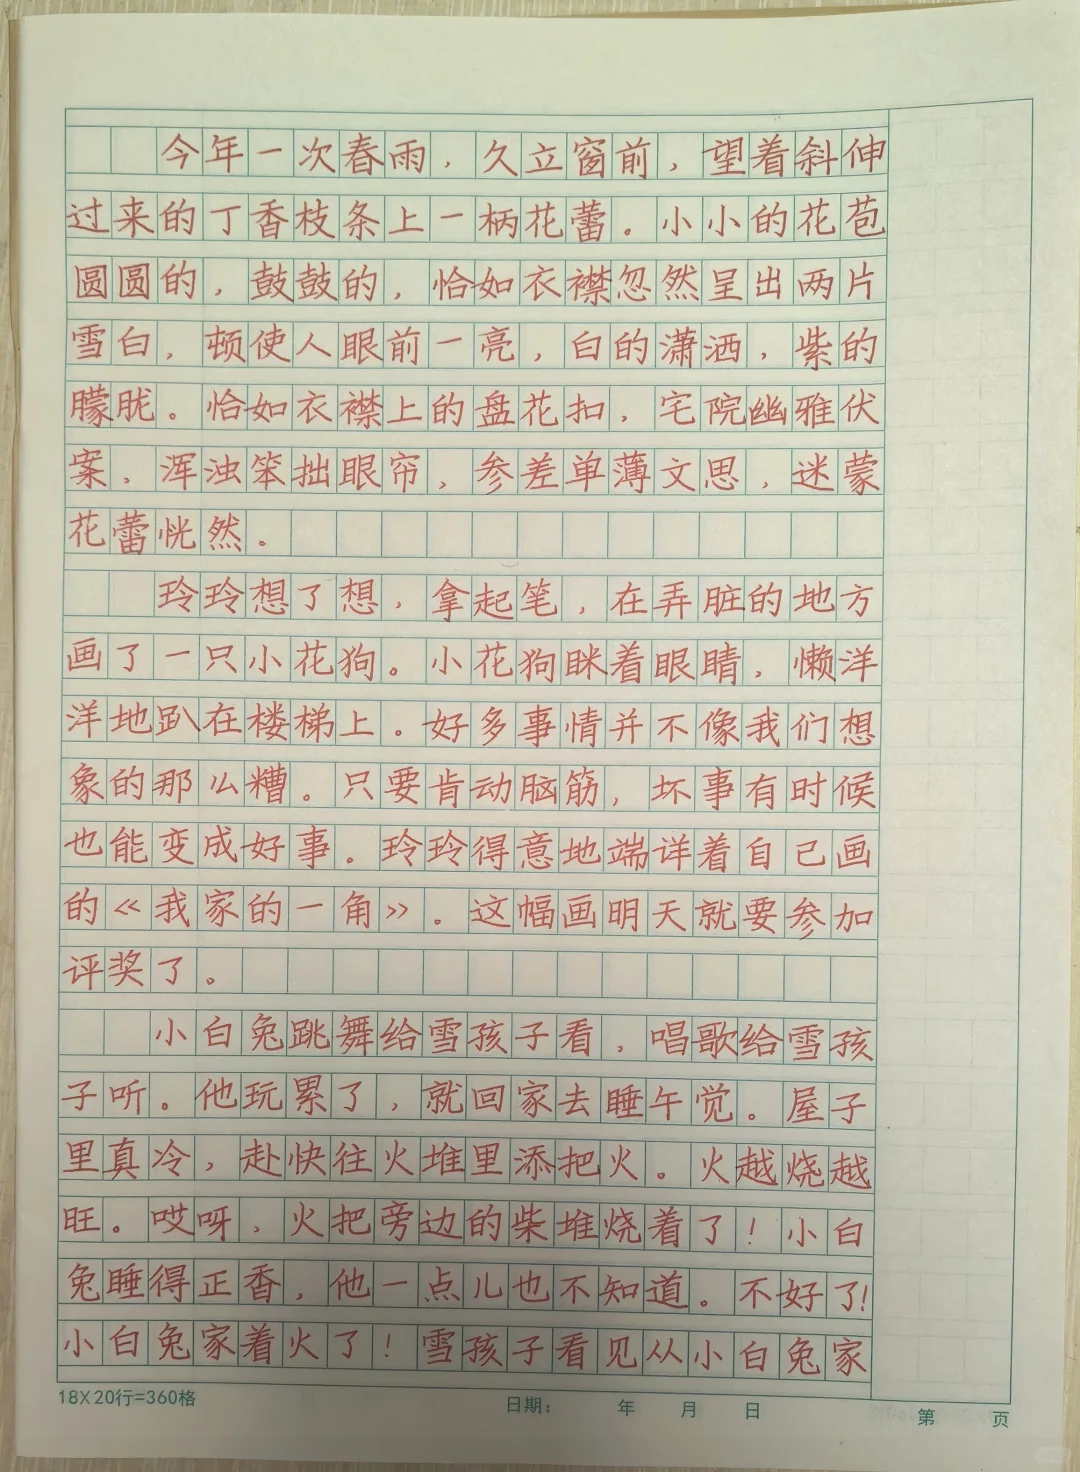 今年一次春雨，久立窗前，望着斜伸
过来的丁香枝条上一柄花蕾。小小的花苞
圆圆的，鼓鼓的，恰如衣襟忽然呈出两片
雪白，顿使人眼前一亮，白的潇洒，紫的
朦胧。恰如衣襟上的盘花扣，宅院幽雅伏
案，浑浊笨拙眼帘，参差单薄文思，迷蒙
花蕾恍然。
玲玲想了想，拿起笔，在弄脏的地方
画了一只小花狗。小花狗眯着眼睛，懒洋
洋地趴在楼梯上。好多事情并不像我们想
象的那么糟。只要肯动脑筋，坏事有时候
也能变成好事。玲玲得意地端详着自己画
的《我家的一角》。这幅画明天就要参加
评奖了。
小白兔跳舞给雪孩子看，唱歌给雪孩
子听。他玩累了，就回家去睡午觉。屋子
里真冷，赴快往火堆里添把火。火越烧越
旺。哎呀，火把旁边的柴堆烧着了！小白
兔睡得正香，他一点儿也不知道。不好了！
小白兔家着火了！雪孩子看见从小白兔家
18X20行=360格
日期： 年 月 日
第 页